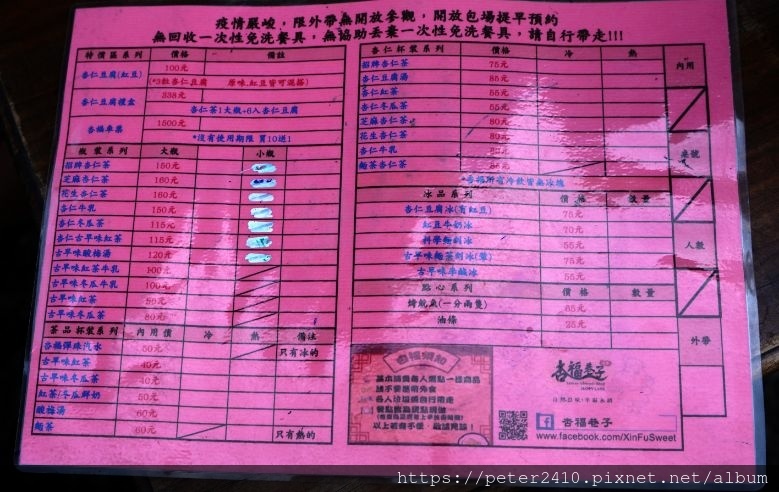 疫情嚴峻，限外帶無開放參觀，開放包場提早預約
無回收一次性免洗餐具，無協助丟棄一次性免洗餐具，請自行帶走!!!
特價區系列 價格 備註
杏仁豆腐(紅豆) 100元
(*3粒杏仁豆腐 原味.紅豆皆可混搭)
杏仁豆腐禮盒 338元
杏仁茶1大瓶+6入杏仁豆腐
杏福車藥 1500元
*沒有使用期限 買10送1
瓶裝系列 大瓶 小瓶
招牌杏仁茶 150元
芝麻杏仁茶 160元
花生杏仁茶 160元
杏仁牛乳 150元
杏仁冬瓜茶 115元
杏仁古早味紅茶 115元
古早味酸梅湯 120元
古早味紅茶牛乳 100元
古早味冬瓜牛乳 100元
古早味紅茶
古早味冬瓜茶 80元
茶品杯裝系列 內用價 冷 熱 備註
杏福彈珠汽水 50元 只有冰的
古早味紅茶 40元
古早味冬瓜茶 40元
紅茶/冬瓜鮮奶 50元
酸梅湯 60元
麵茶 60元 只有熱的
杏仁杯裝系列 價格 冷 熱
招牌杏仁茶 75元
杏仁豆腐湯 85元
杏仁紅茶 55元
杏仁冬瓜茶 55元
芝麻杏仁茶 80元
花生杏仁茶
杏仁牛乳
麵茶杏仁茶
*杏福所有冷飲皆無冰塊
冰品系列 價格 數量
杏仁豆腐冰(有紅豆) 75元
紅豆牛奶冰 70元
科學麵剉冰 55元
古早味麵茶剉冰(葷) 75元
古早味半鹹冰 55元
點心系列 價格 數量
烤魷魚(一分兩隻) 65元
油條 25元
內用
桌號
人數
外帶
杏福須知
基本消費每人需點一樣商品
請不要帶外食
各人垃圾請自行帶走
以上若有不便，敬請見諒！
杏福巷子
自然自泉·幸福永續
杏福巷子
www.facebook.com/XinFuSweet
https://peter2410.pixnet.net/album